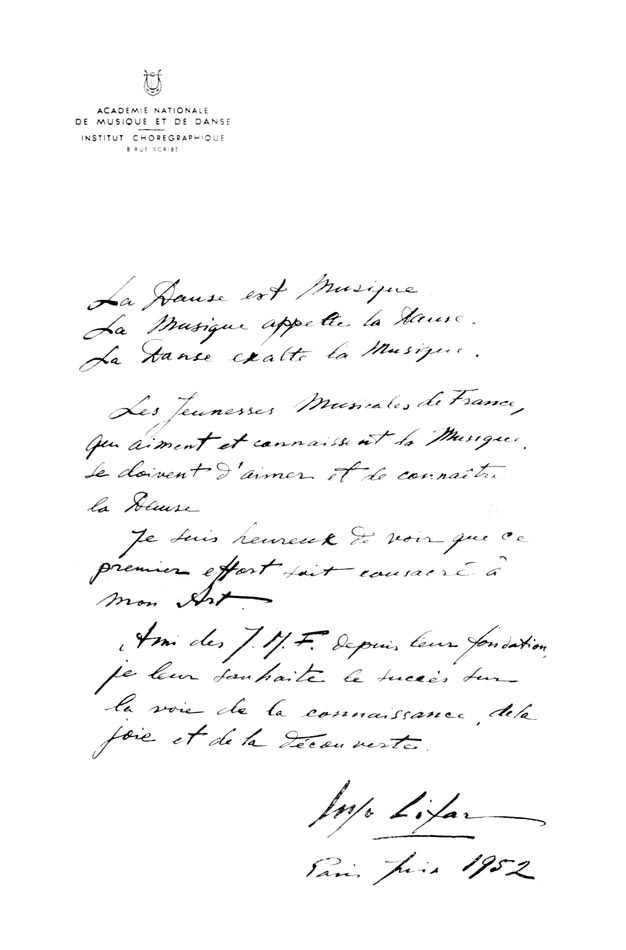 ACADEMIE NATIONALE
DE MUSIQUE ET DE DANSE
INSTITUT CHOREGRAPHIQUE
8 RUE SCRIBE
La Danse est Musique
La Musique appelle la Danse.
La Danse exalte la Musique.
Les Jeunesses Musicales de France,
qui aiment et connaissent la Musique,
se doivent d'aimer et de connaître
la Danse
Je suis heureux de voir que ce
premier effort soit consacré à
mon Art.
Ami des J.M.F. depuis leur fondation,
je leur souhaite le succès sur
la voie de la connaissance, de la
joie et de la découverte.
Serge Lifar
Paris Juin 1952